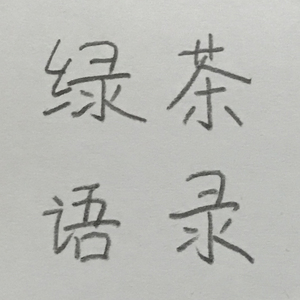 绿茶
语录